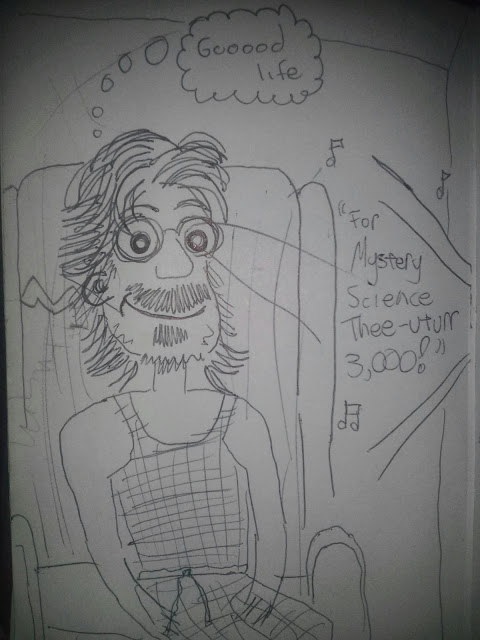 Gooood
life
"For
Mystery
Science
Thee-uturr
3,000!"